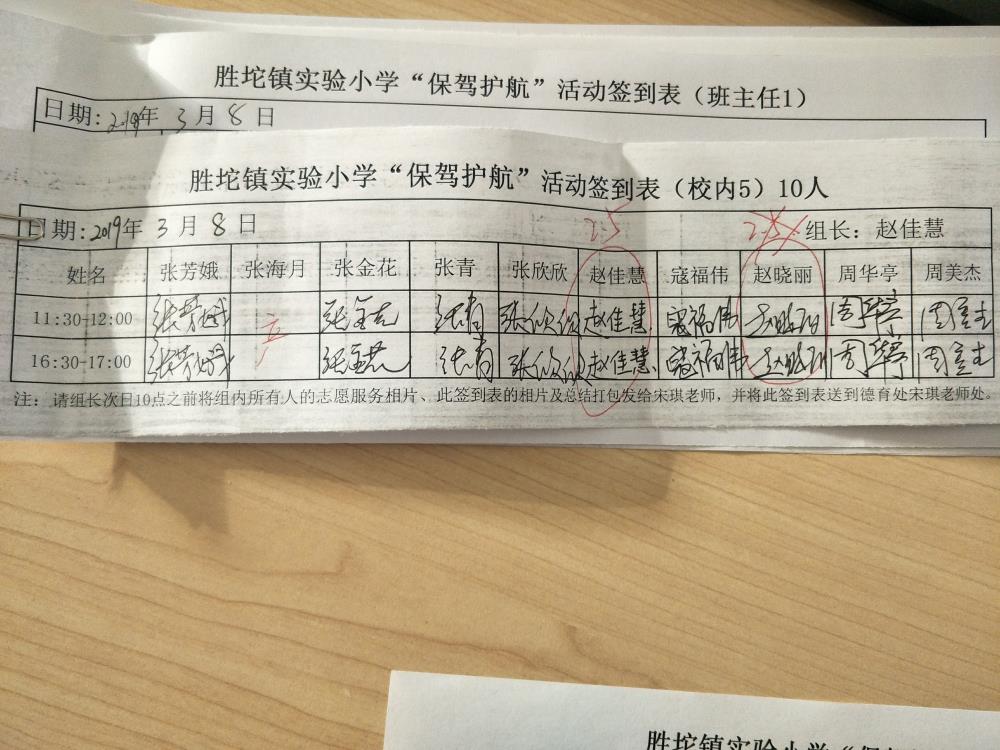 胜坨镇实验小学“保驾护航”活动签到表（班主任1）
日期: 2019年 3月 8日
胜坨镇实验小学“保驾护航”活动签到表（校内5）10人
2.5
日期: 2019年 3月 8日 组长：赵佳慧
姓名 张芳娥 张海月 张金花 张青 张欣欣 赵佳慧 寇福伟 赵晓丽 周华亭 周美杰
11:30-12:00 张芳娥 产 张金花 张青 张欣欣 赵佳慧 寇福伟 赵晓丽 周华亭 周美杰
16:30-17:00 张芳娥 张金花 张青 张欣欣 赵佳慧 寇福伟 赵晓丽 周华亭 周美杰
注：请组长次日10点之前将组内所有人的志愿服务相片、此签到表的相片及总结打包发给宋琪老师，并将此签到表送到德育处宋琪老师处。
胜坨镇实验小学“保